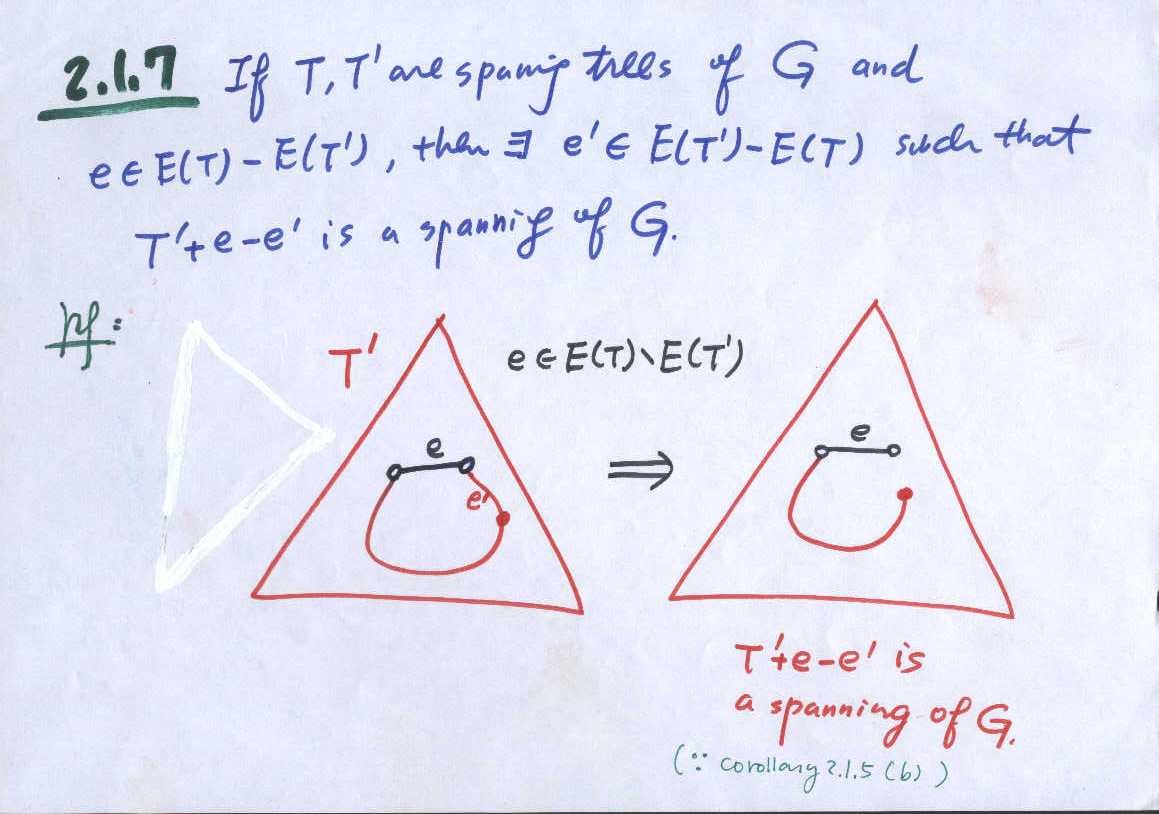 2.1.7 If T, T' are spaning trees of G and
e ∈ E(T) - E(T'), then ∃ e' ∈ E(T') - E(T) such that
T'+e-e' is a spanning of G.
pf:
T'
e ∈ E(T)∖E(T')
e
e'
⇒
e
T'+e-e' is
a spanning of G.
(∵ corollary 2.1.5 (b))